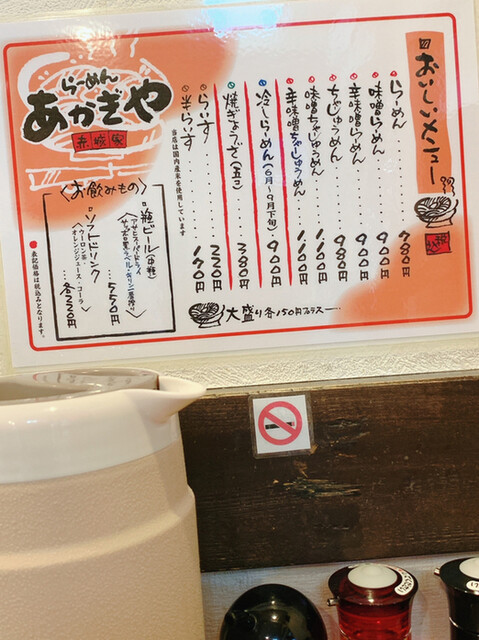 おいしいメニュー
らーめん‥‥780円
味噌らーめん‥‥900円
辛味噌らーめん‥‥900円
ちゃーしゅうめん‥‥980円
味噌ちゃーしゅうめん‥‥1,100円
辛味噌ちゃーしゅうめん‥‥1,100円
冷しらーめん(6月〜9月下旬)‥‥900円
焼ぎょうざ(五コ)‥‥380円
らいす‥‥230円
半らいす‥‥170円
当店は国内産米を使用しています
大盛り各150円プラス
らーめん
あかぎや
赤城家
<お飲みもの>
・瓶ビール(中瓶)‥‥550円
・ソフトドリンク‥‥各220円
<ウーロン茶・
オレンジジュース・コーラ>
●表記価格は税込みとなります。